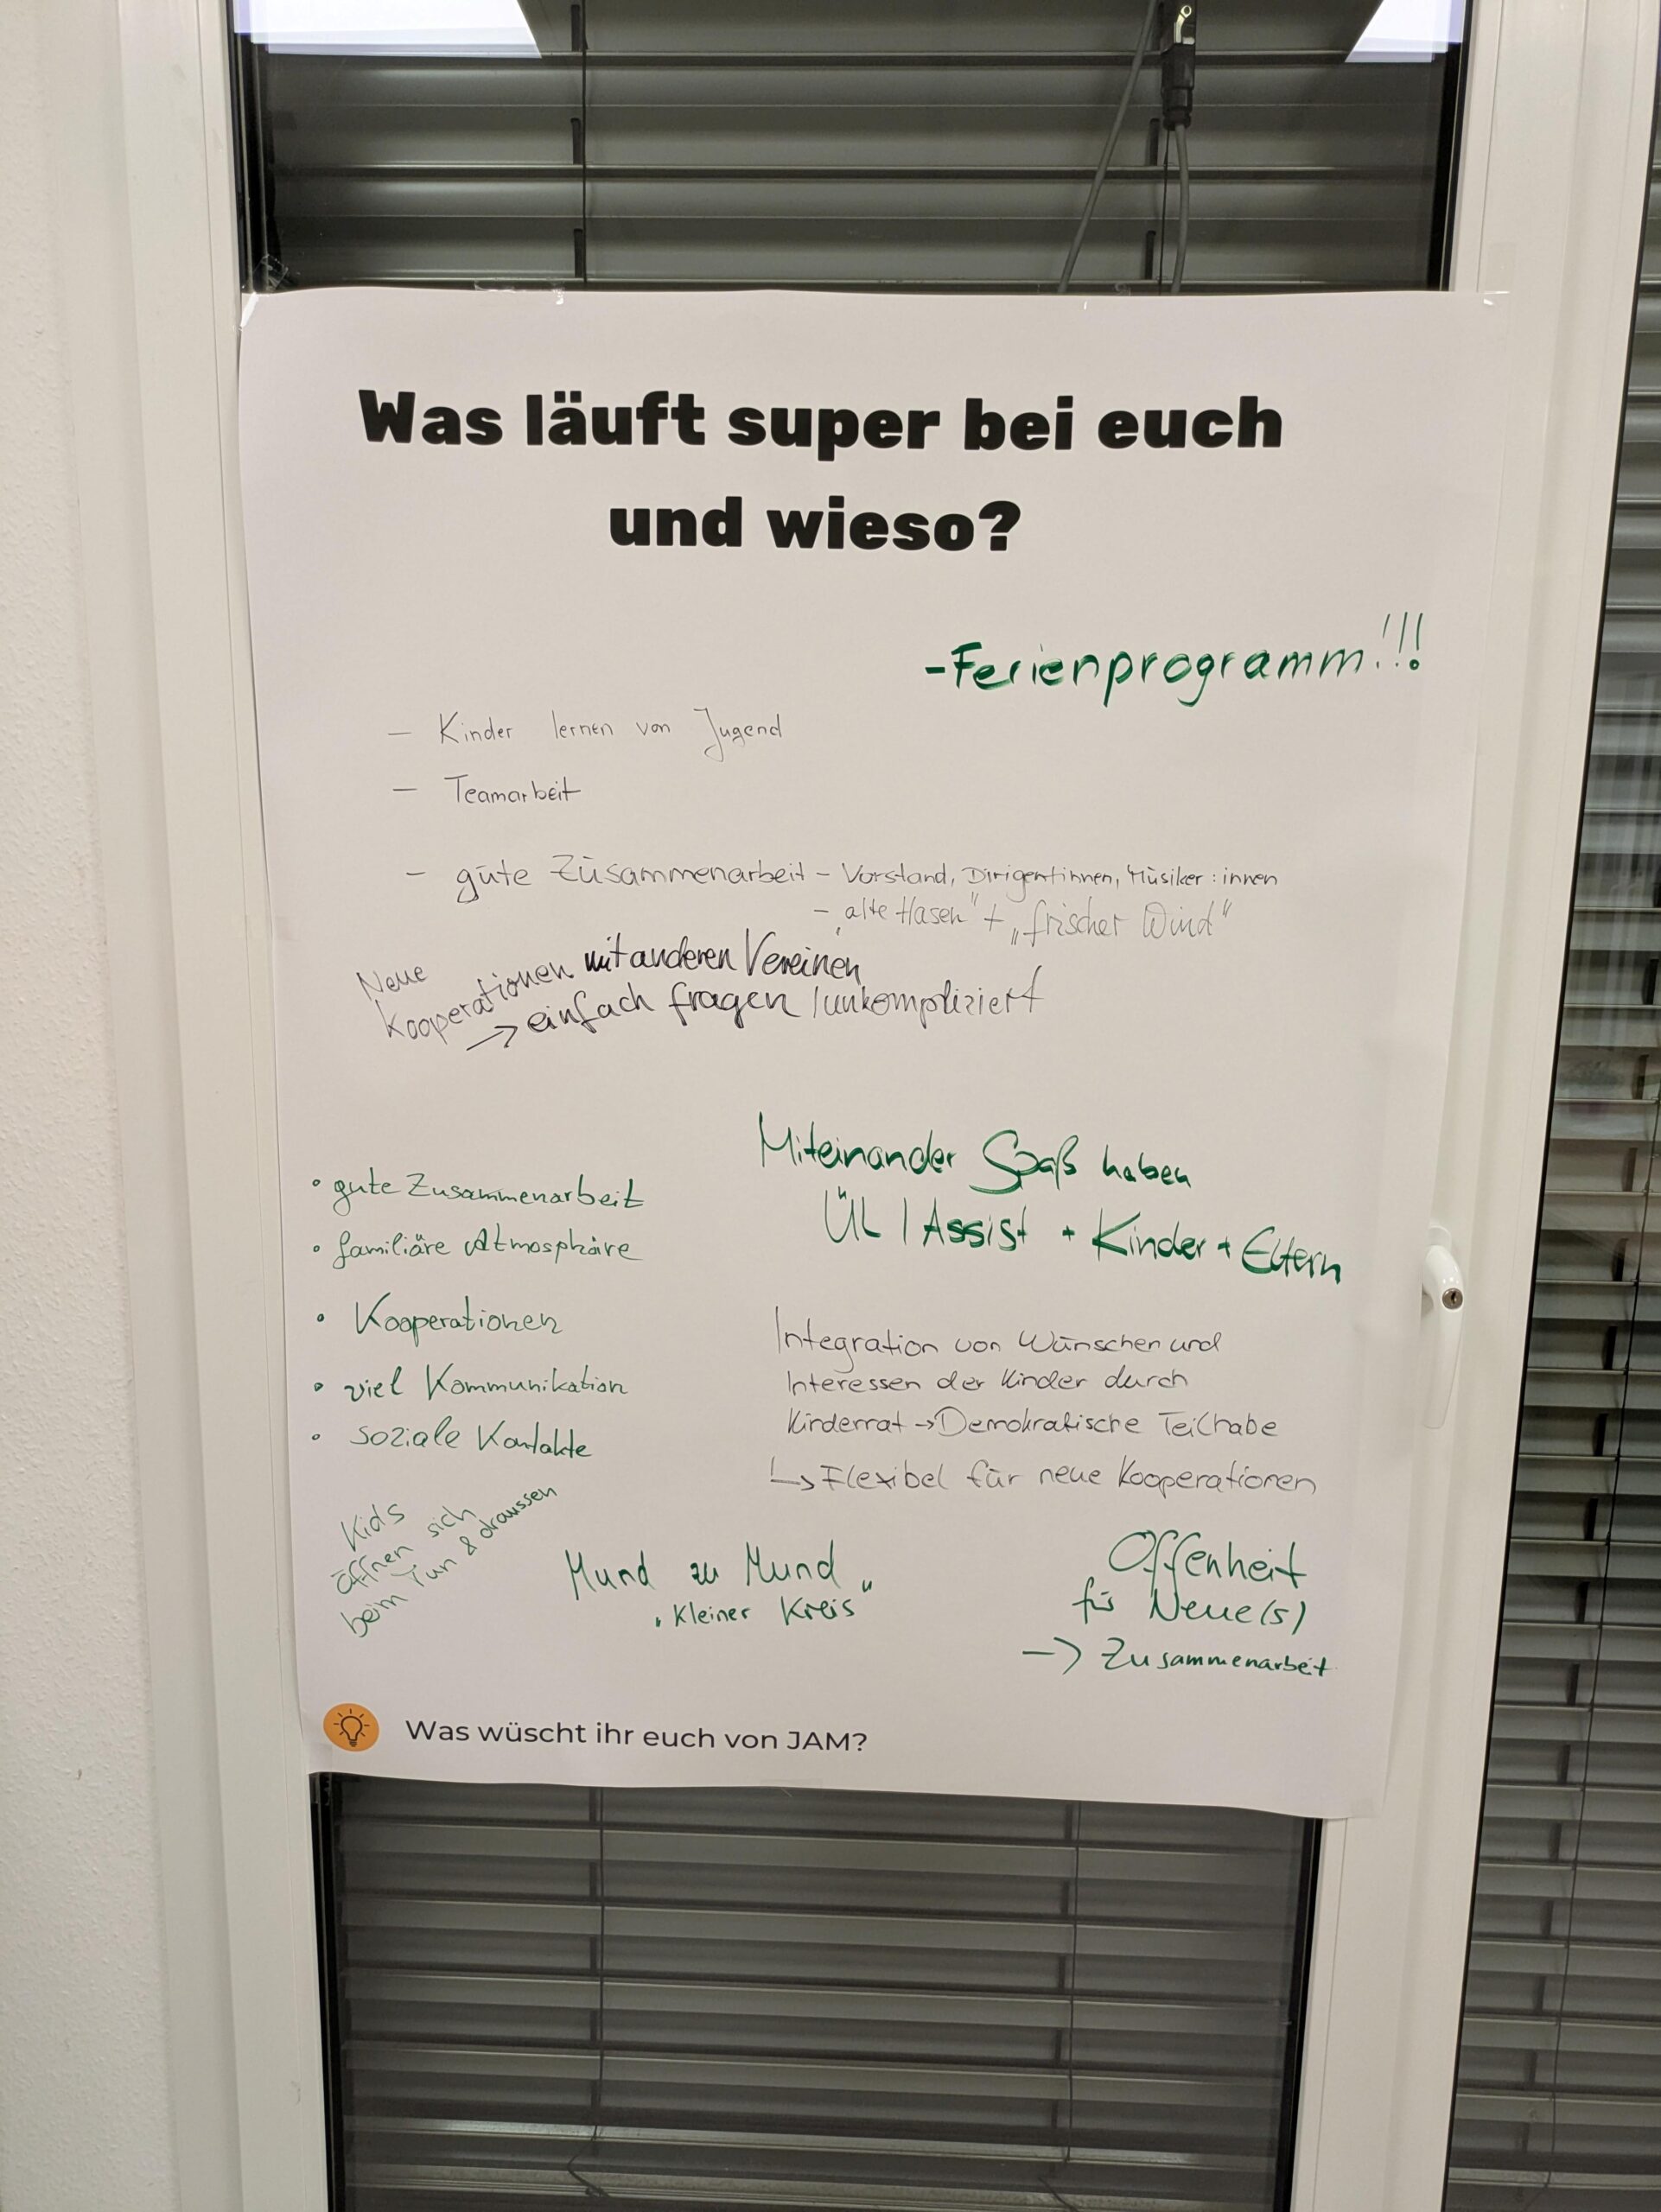 Was läuft super bei euch
und wieso?
-Ferienprogramm!!!
- Kinder lernen von Jugend
- Teamarbeit
- gute Zusammenarbeit - Vorstand, Dirigent:innen, Musiker:innen
- „alte Hasen" + „frischer Wind"
Neue
Kooperationen mit anderen Vereinen
→ einfach fragen / unkompliziert
Miteinander Spaß haben
ÜL / Assist + Kinder + Eltern
• gute Zusammenarbeit
• familiäre Atmosphäre
• Kooperationen
• viel Kommunikation
• soziale Kontakte
Integration von Wünschen und
Interessen der Kinder durch
Kinderrat → Demokratische Teilhabe
↳ Flexibel für neue Kooperationen
Kids
öffnen sich
beim Tun & draussen
Mund zu Mund
„Kleiner Kreis"
Offenheit
für Neue(s)
→ Zusammenarbeit
Was wüscht ihr euch von JAM?